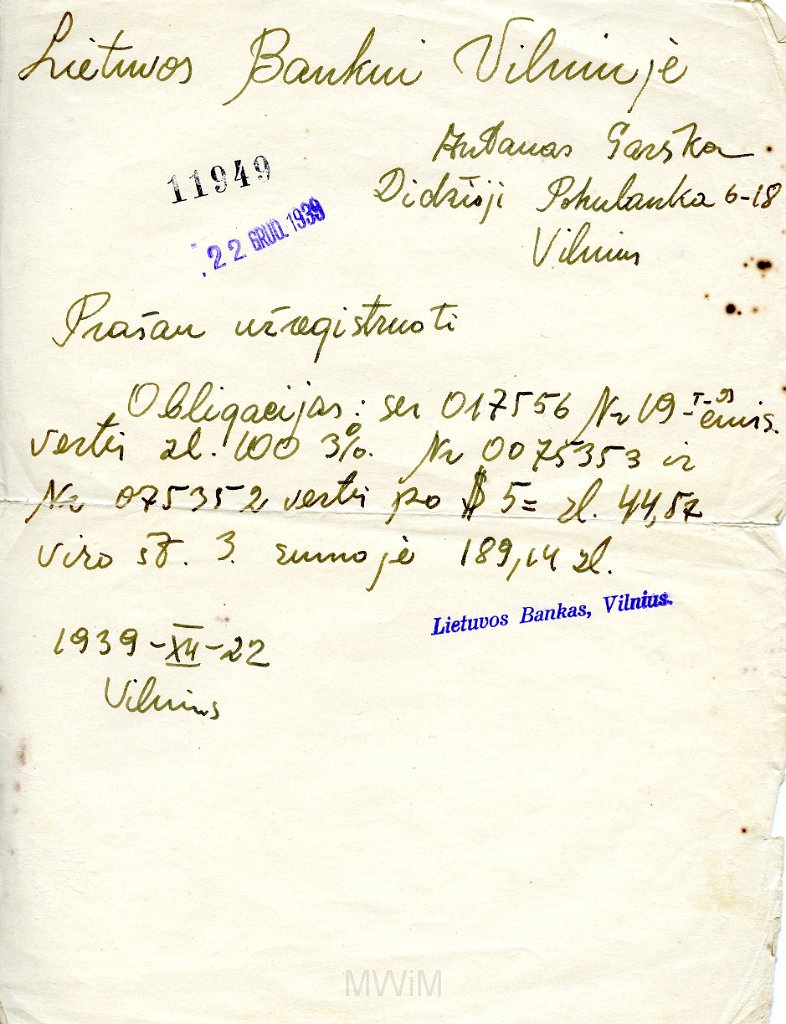 Lietuvos Bankui Vilniuje
Antanas Garška
Didžioji Pohulanka 6-18
Vilnius
11949
22 GRUO. 1939
Prašau užregistruoti
Obligacijas: ser 017556 Nr 19 - I-os emis.
vertės zl. 100 3%. Nr 0075353 ir
Nr 075352 vertės po $ 5 = zl. 44,57
viso št. 3. sumoje 189,14 zl.
Lietuvos Bankas, Vilnius.
1939-XII-22
Vilnius
MWiM